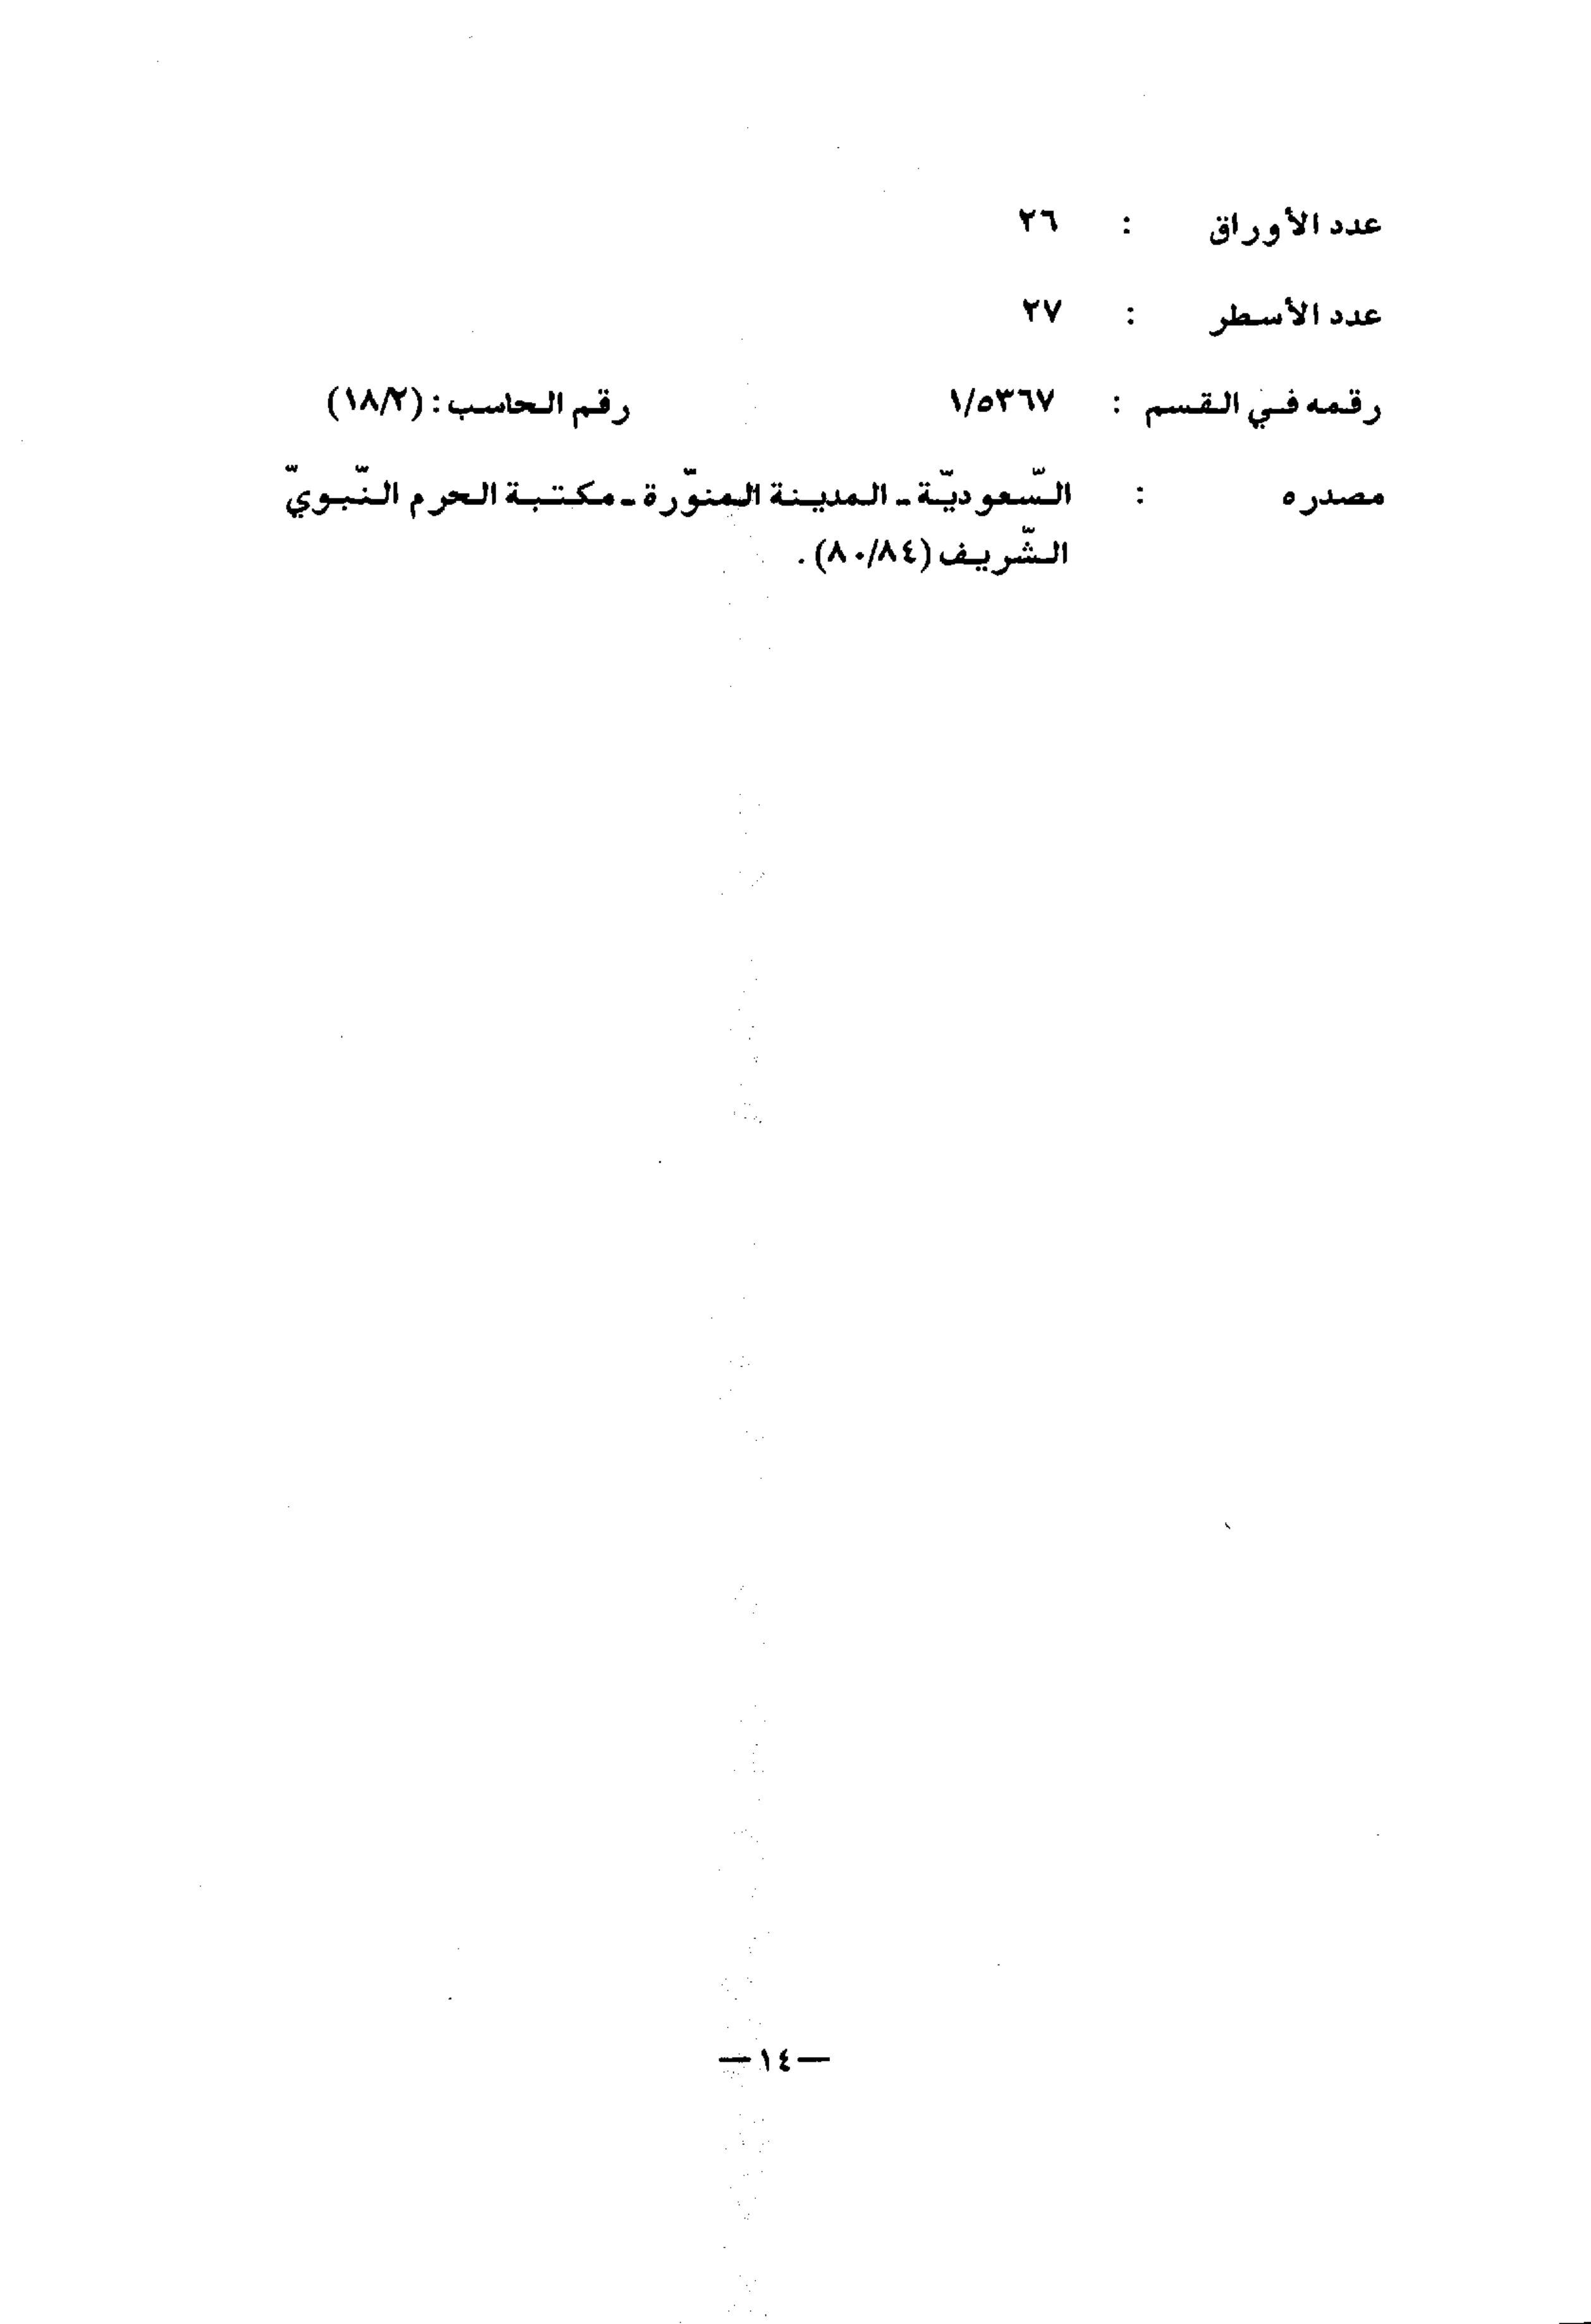 عدد الأوراق : ٢٦
عدد الأسطر : ٢٧
رقمه في القسم : ١/٥٣٦٧ رقم الحاسب : (١٨/٢)
مصدره : السّعوديّة - المدينة المنوّرة - مكتبة الحرم النّبويّ
الشّريف (٨٠/٨٤) .
— ١٤ —